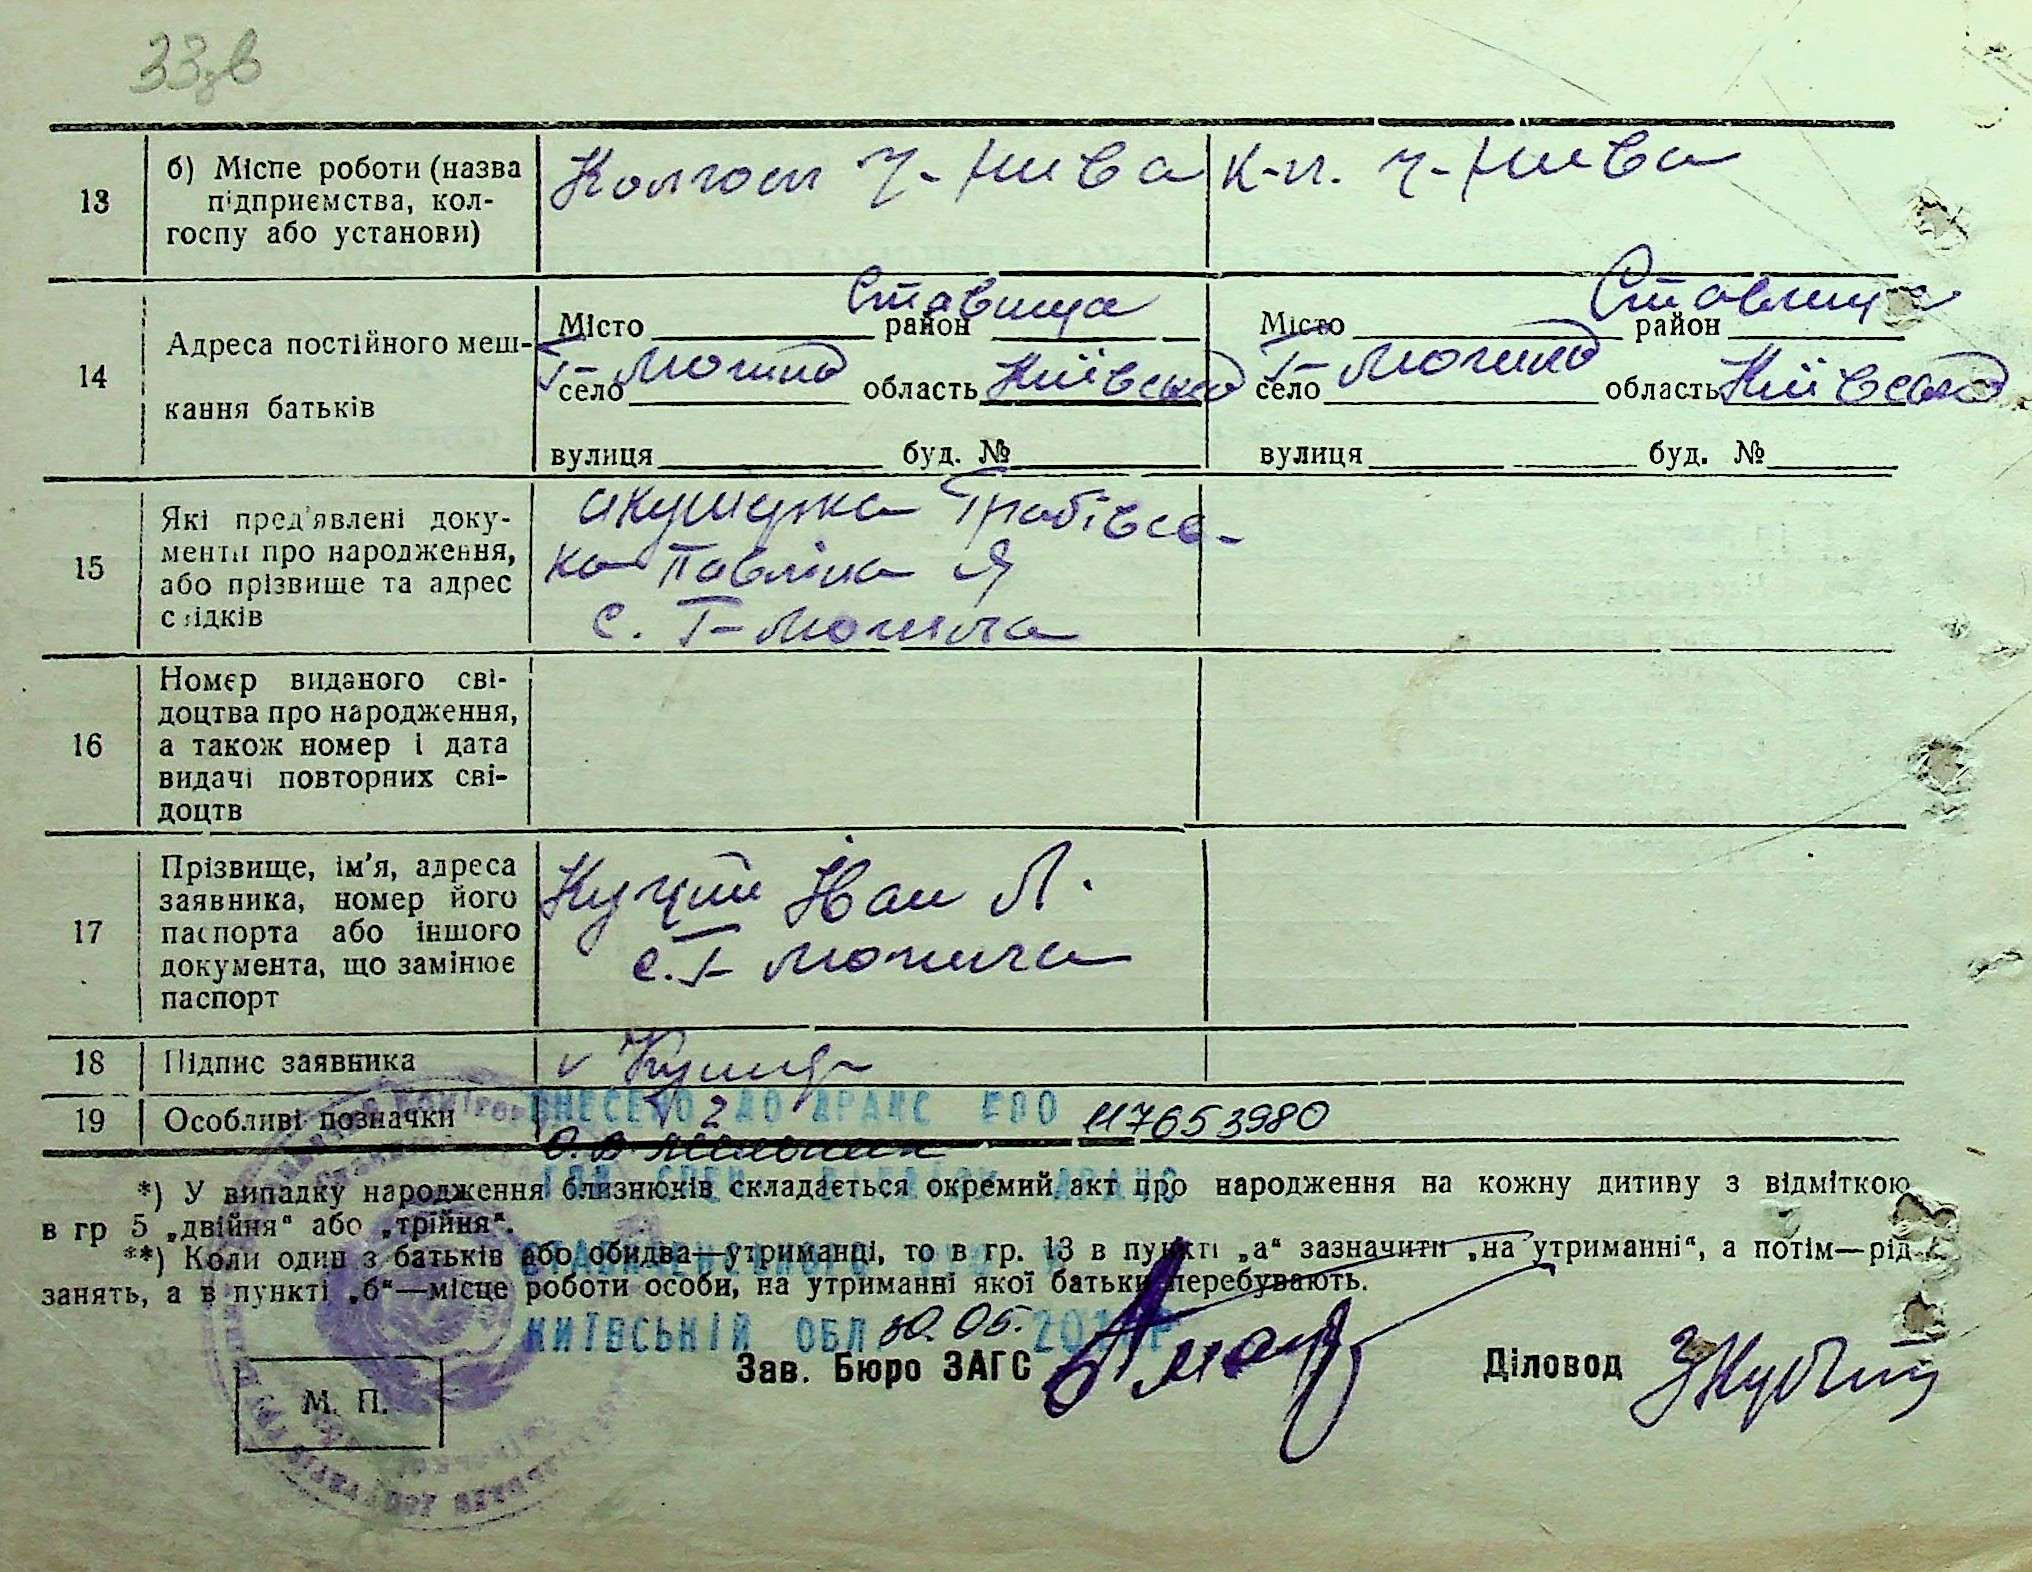 33 зв
13
б) Місце роботи (назва
підприємства, кол-
госпу або установи)
Колгосп Ч-Нива
К-п. Ч-Нива
14
Адреса постійного меш-
кання батьків
Місто район Ставища
село Г-Могила область Київська
вулиця буд. №
Місто район Ставища
село Г-Могила область Київська
вулиця буд. №
15
Які пред'явлені доку-
менти про народження,
або прізвище та адрес
свідків
акушерка Грабівсь-
ка Павліна Я
с. Г-Могила
16
Номер виданого сві-
доцтва про народження,
а також номер і дата
видачі повторних сві-
доцтв
17
Прізвище, ім'я, адреса
заявника, номер його
паспорта або іншого
документа, що замінює
паспорт
Куций Іван Л.
с. Г-Могила
18
Підпис заявника
19
Особливі позначки
ВНЕСЕНО ДО ДРАЦС
*) У випадку народження близнюків складається окремий акт про народження на кожну дитину з відміткою
в гр 5 „двійня“ або „трійня“.
**) Коли один з батьків або обидва—утриманці, то в гр. 13 в пункті „а“ зазначити „на утриманні“, а потім—рід
занять, а в пункті „б“—місце роботи особи, на утриманні якої батьки перебувають.
КИЇВСЬКІЙ ОБЛ. 30.05.
Зав. Бюро ЗАГС
Діловод
М. П.